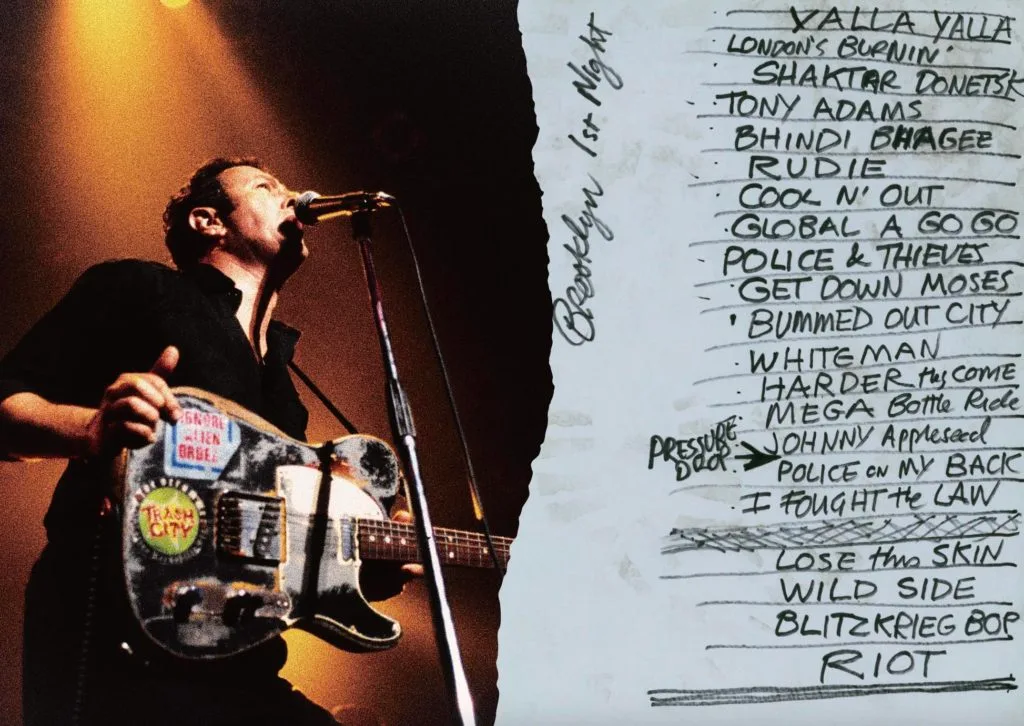 IGNORE
ALIEN
ORDERS
TRASH
CITY
Brooklyn 1st Night
YALLA YALLA
LONDON'S BURNIN'
SHAKTAR DONETSK
TONY ADAMS
BHINDI BHAGEE
RUDIE
COOL N' OUT
GLOBAL A GO GO
POLICE & THIEVES
GET DOWN MOSES
BUMMED OUT CITY
WHITEMAN
HARDER they COME
MEGA Bottle Ride
JOHNNY Appleseed
PRESSURE
DROP
POLICE on MY BACK
I FOUGHT the LAW
LOSE this SKIN
WILD SIDE
BLITZKRIEG BOP
RIOT